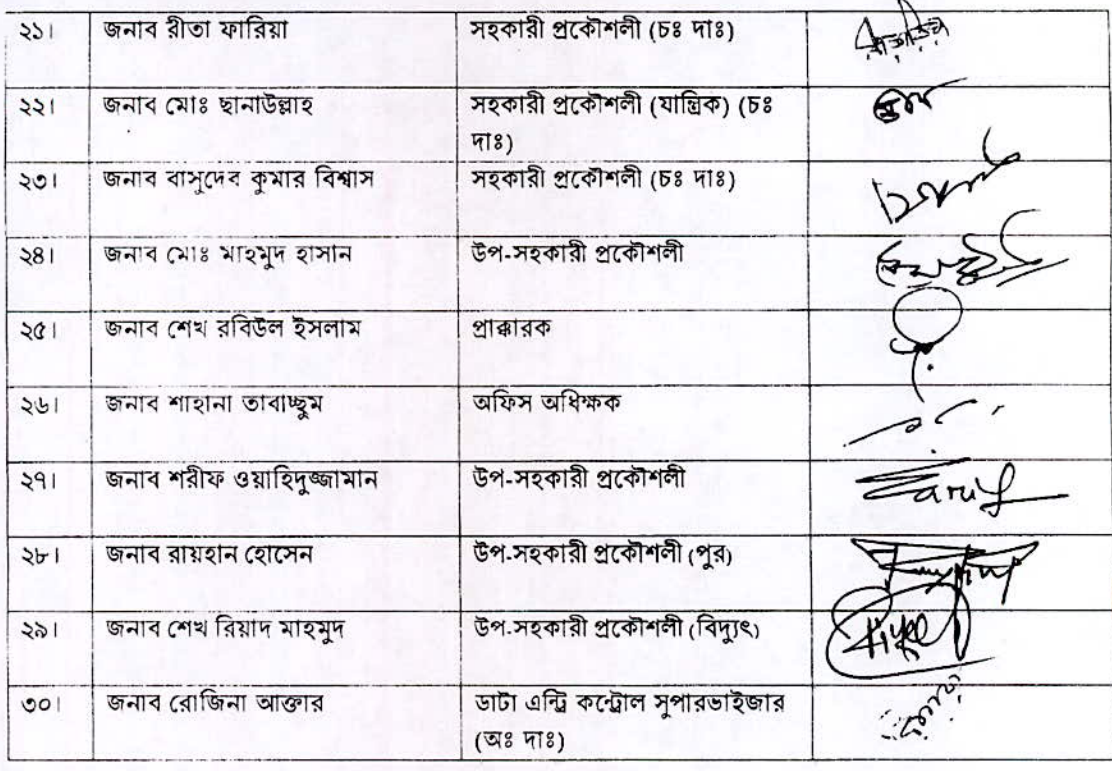 ২১। জনাব রীতা ফারিয়া সহকারী প্রকৌশলী (চঃ দাঃ)
২২। জনাব মোঃ ছানাউল্লাহ সহকারী প্রকৌশলী (যান্ত্রিক) (চঃ
দাঃ)
২৩। জনাব বাসুদেব কুমার বিশ্বাস সহকারী প্রকৌশলী (চঃ দাঃ)
২৪। জনাব মোঃ মাহমুদ হাসান উপ-সহকারী প্রকৌশলী
২৫। জনাব শেখ রবিউল ইসলাম প্রাক্কারক
২৬। জনাব শাহানা তাবাচ্ছুম অফিস অধিক্ষক
২৭। জনাব শরীফ ওয়াহিদুজ্জামান উপ-সহকারী প্রকৌশলী
২৮। জনাব রায়হান হোসেন উপ-সহকারী প্রকৌশলী (পুর)
২৯। জনাব শেখ রিয়াদ মাহমুদ উপ-সহকারী প্রকৌশলী (বিদ্যুৎ)
৩০। জনাব রোজিনা আক্তার ডাটা এন্ট্রি কন্ট্রোল সুপারভাইজার
(অঃ দাঃ)